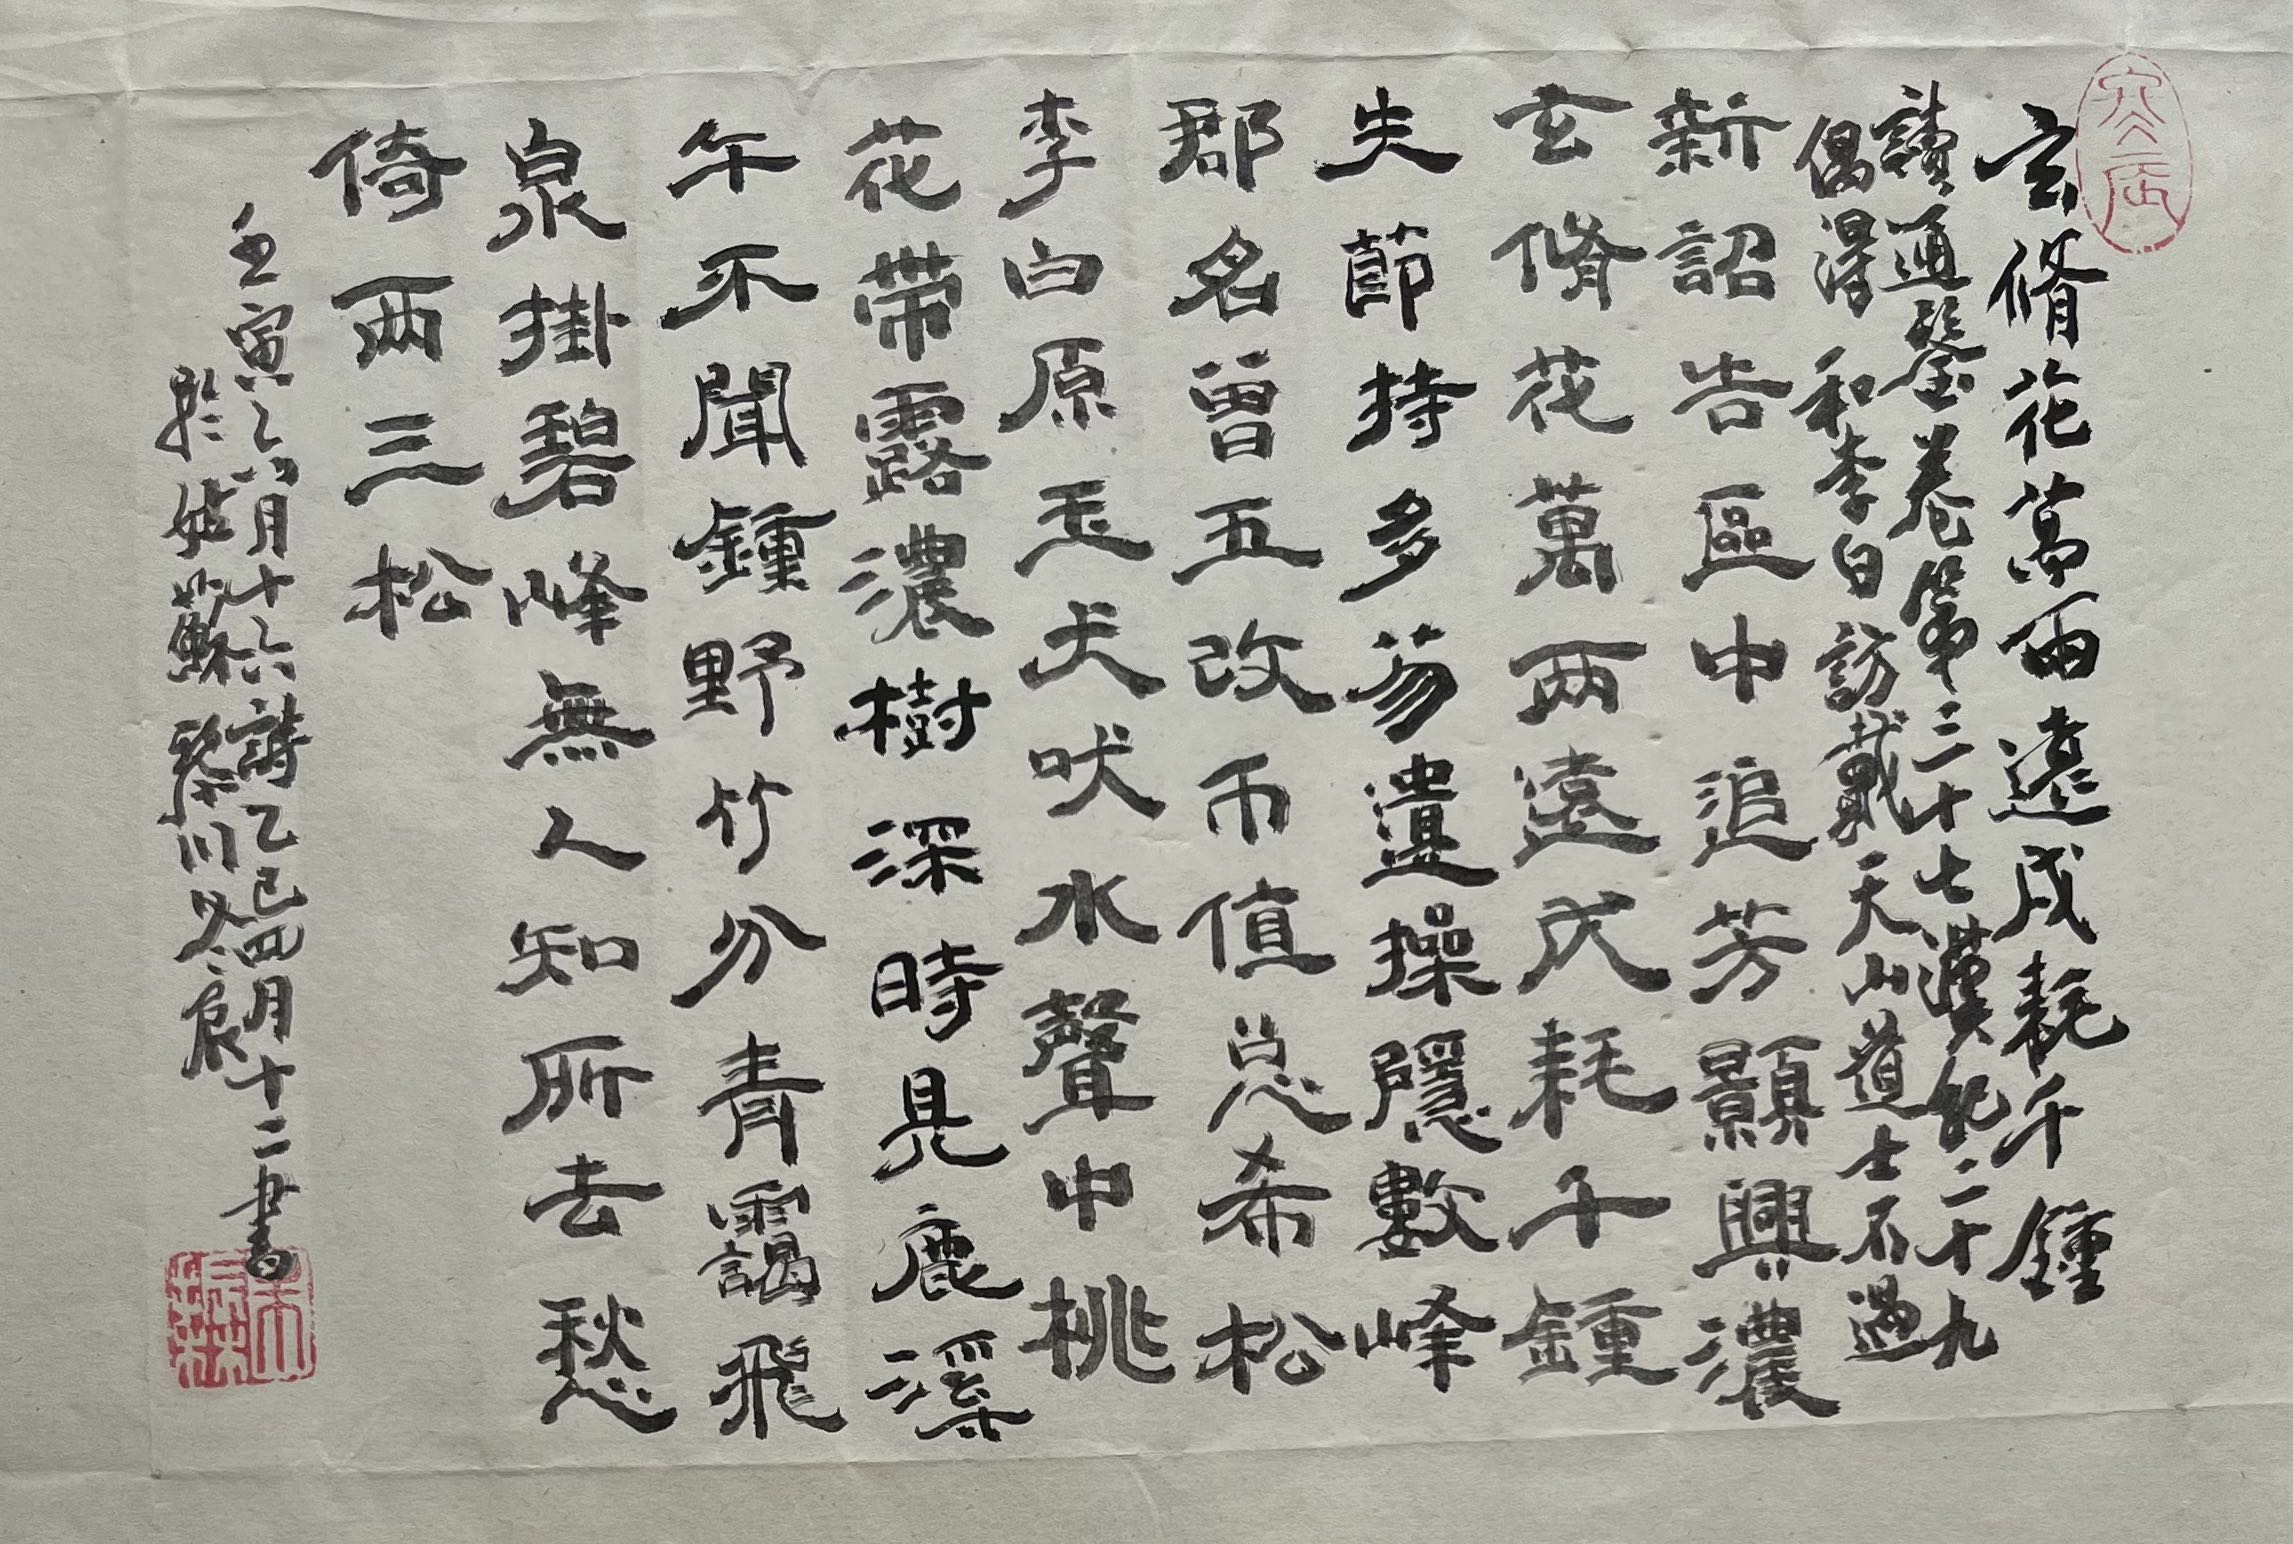 玄脩花萬兩遠戍耗千鍾
讀通鑒卷第三十七漢紀二十九
偶得和李白訪戴天山道士不遇
新詔告區中追芳顯興濃
玄脩花萬兩遠戍耗千鍾
失節持多芴遺操隱數峰
郡名曾五改币值总希松
李白原玉犬吠水聲中桃
花帶露濃樹深時見鹿溪
午不聞鍾野竹分青靄飛
泉掛碧峰無人知所去愁
倚兩三松
壬寅乙月十六詩乙巳四月十二書
於姑蘇